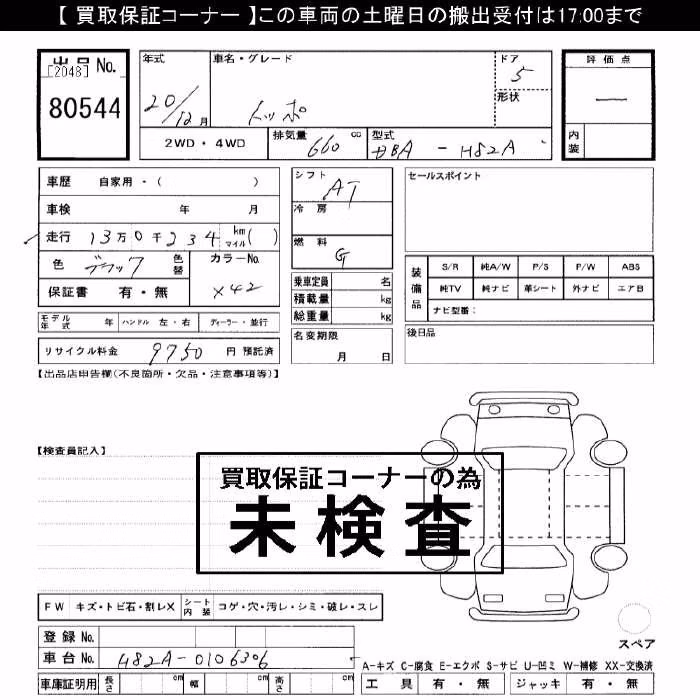 【 買取保証コーナー 】この車両の土曜日の搬出受付は17:00まで
出品 No.
[2048]
80544
年式
20/12月
車名・グレード
トッポ
ドア
5
形状
評価点
—
内装
2WD・4WD
排気量 660 cc
型式 DBA - H82A
車歴 自家用・( )
車検 年 月
走行 13万0千234 km マイル ( )
色 ブラック 色替
カラーNo.
X42
保証書 有・無
モデル年式 年 ハンドル 左・右 ディーラー・並行
リサイクル料金 9750 円 預託済
シフト
AT
冷房
燃料
G
乗車定員 名
積載量 kg
総重量 kg
名変期限
月 日
セールスポイント
装備品
S/R 純A/W P/S P/W ABS
純TV 純ナビ 革シート 外ナビ エアB
ナビ型番：
後日品
【出品店申告欄(不良箇所・欠品・注意事項等)】
【検査員記入】
買取保証コーナーの為
未検査
FW キズ・トビ石・割レX シート内装 コゲ・穴・汚レ・シミ・破レ・スレ
登録 No.
車台 No. H82A-0106306
車庫証明用 長さ cm 幅 cm 高さ cm
スペア
A-キズ C-腐食 E-エクボ S-サビ U-凹ミ W-補修 XX-交換済
工具 有・無 ジャッキ 有・無